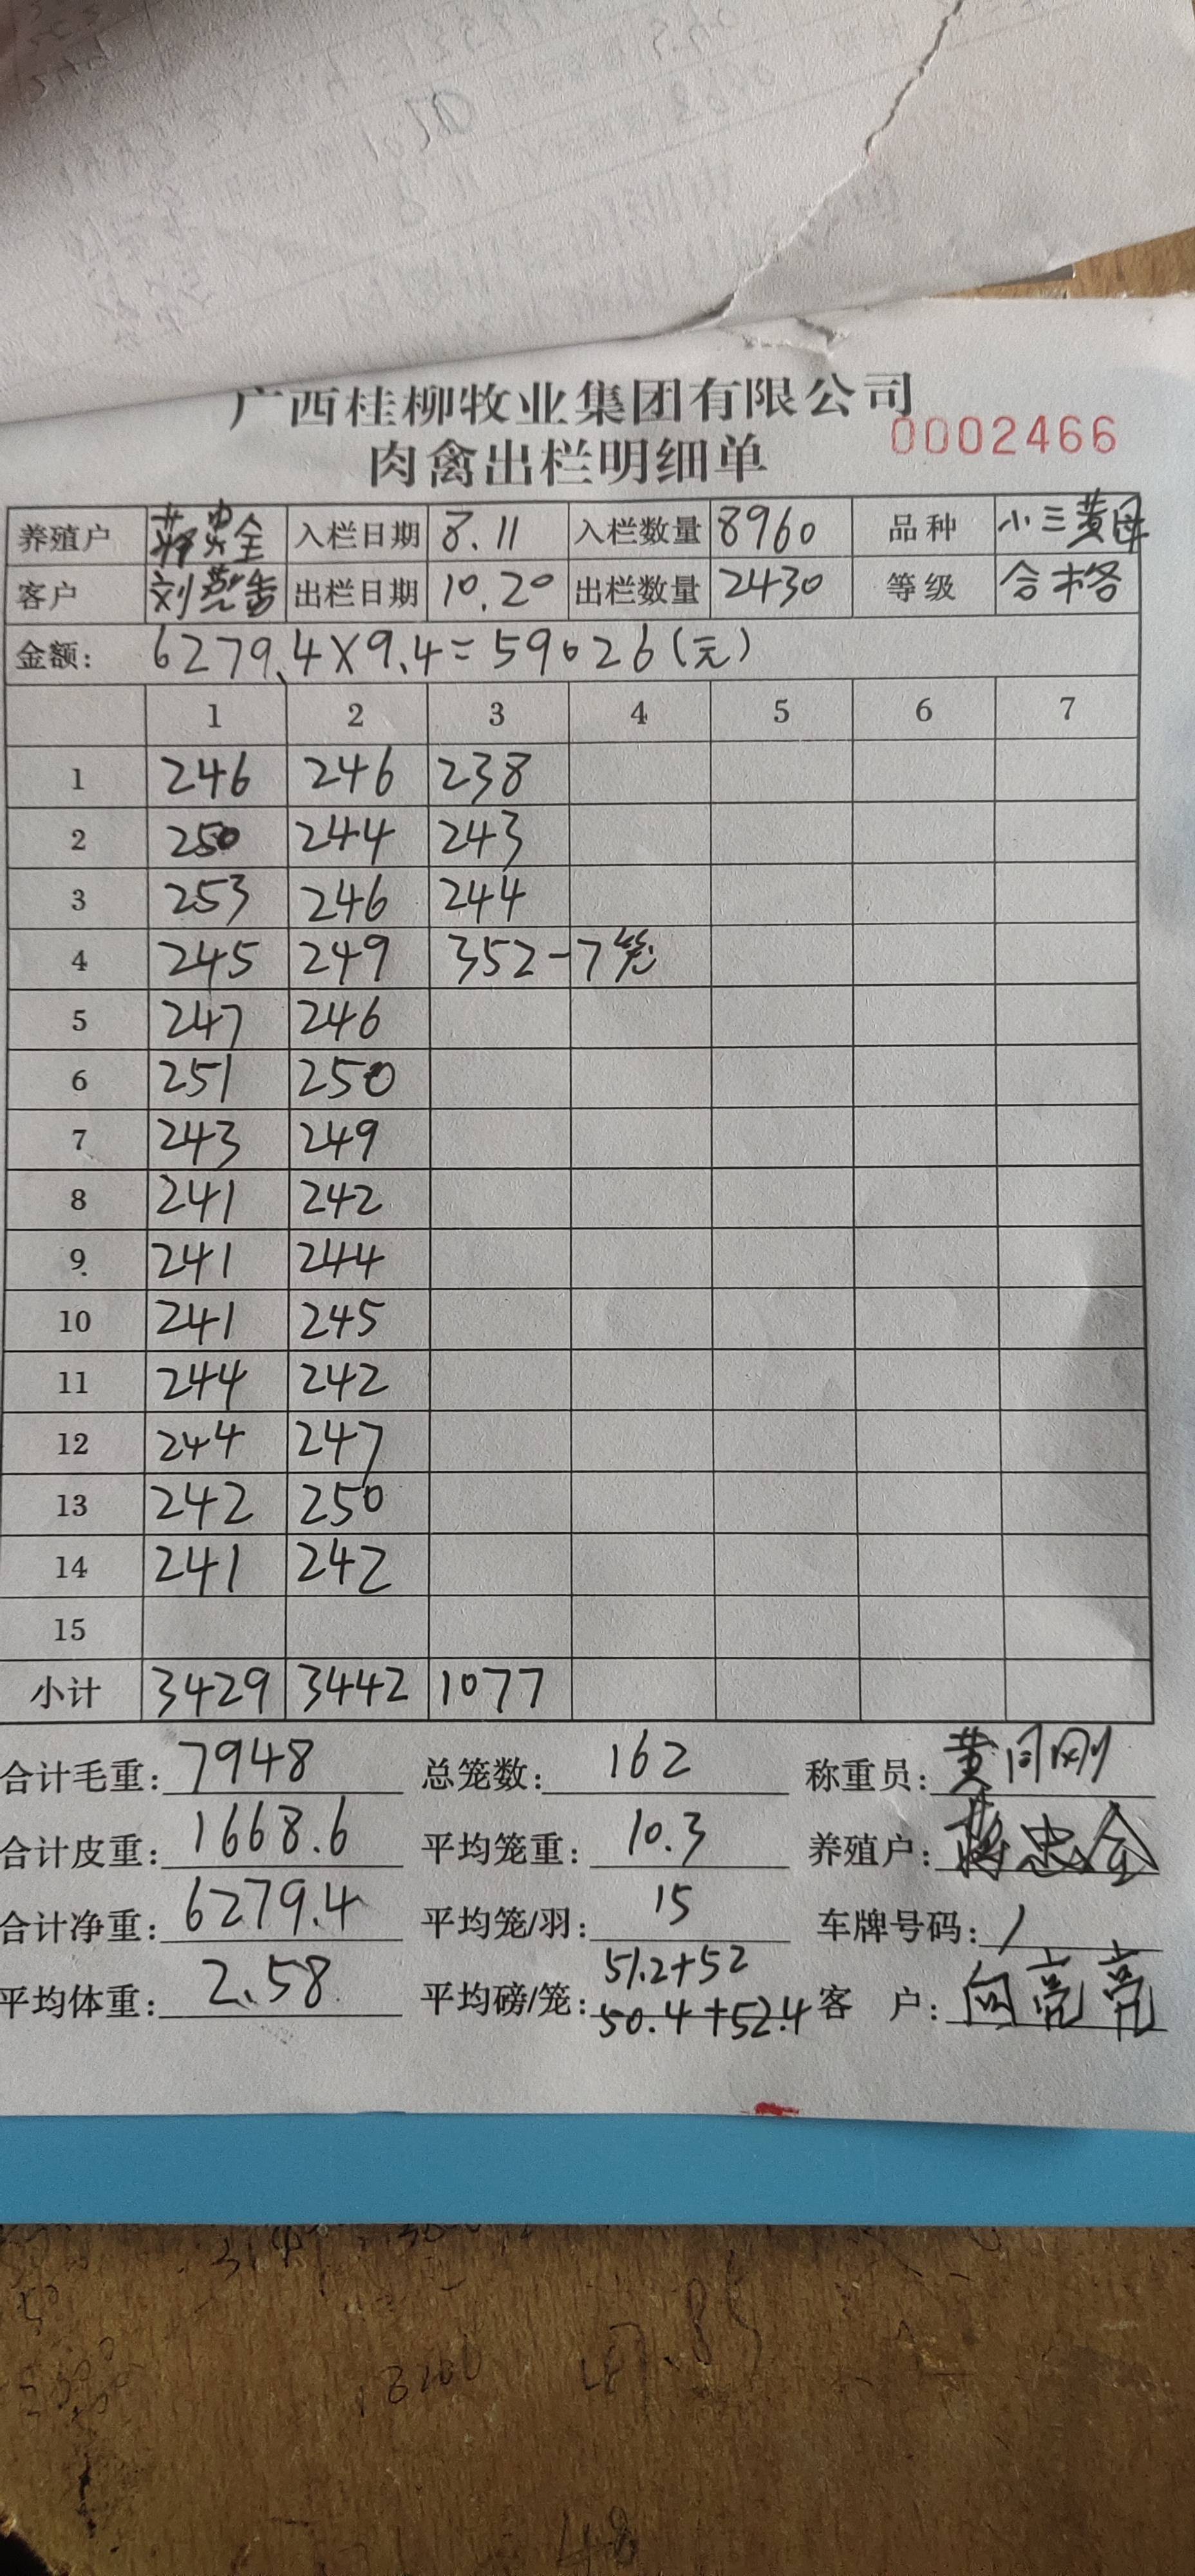 广西桂柳牧业集团有限公司
肉禽出栏明细单 0002466
养殖户 蒋忠全 入栏日期 8.11 入栏数量 8960 品种 小三黄母
客户 刘 出栏日期 10.20 出栏数量 2430 等级 合格
金额: 6279.4×9.4=59026(元)
1 2 3 4 5 6 7
1 246 246 238
2 250 244 243
3 253 246 244
4 245 249 352-7笼
5 247 246
6 251 250
7 243 249
8 241 242
9 241 244
10 241 245
11 244 242
12 244 247
13 242 250
14 241 242
15
小计 3429 3442 1077
合计毛重: 7948 总笼数: 162 称重员: 黄同刚
合计皮重: 1668.6 平均笼重: 10.3 养殖户: 蒋忠全
合计净重: 6279.4 平均笼/羽: 15 车牌号码: /
平均体重: 2.58 平均磅/笼: 51.2+52 50.4+52.4 客户: 向亮亮
8200
48